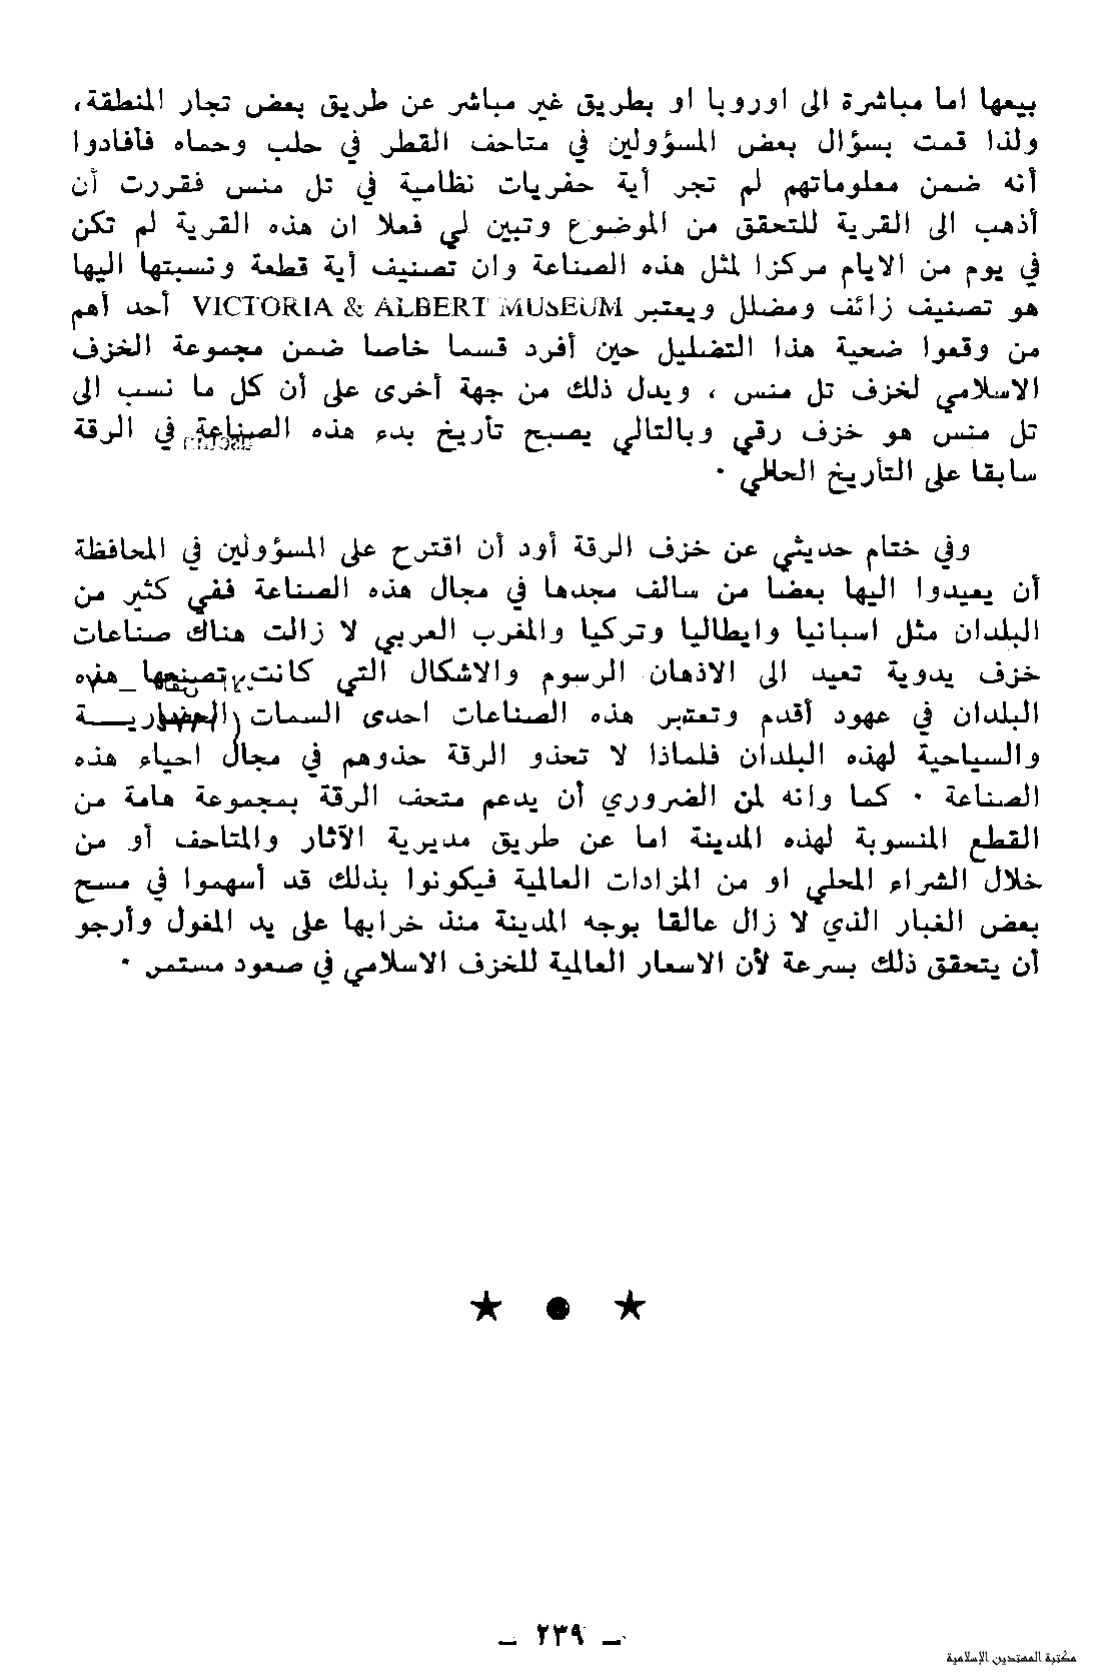 بيعها اما مباشرة الى اوروبا او بطريق غير مباشر عن طريق بعض تجار المنطقة،
ولذا قمت بسؤال بعض المسؤولين في متاحف القطر في حلب وحماه فأفادوا
أنه ضمن معلوماتهم لم تجر أية حفريات نظامية في تل منس فقررت أن
أذهب الى القرية للتحقق من الموضوع وتبين لي فعلا ان هذه القرية لم تكن
في يوم من الايام مركزا لمثل هذه الصناعة وان تصنيف أية قطعة ونسبتها اليها
هو تصنيف زائف ومضلل ويعتبر VICTORIA & ALBERT MUSEUM أحد أهم
من وقعوا ضحية هذا التضليل حين أفرد قسما خاصا ضمن مجموعة الخزف
الاسلامي لخزف تل منس ، ويدل ذلك من جهة أخرى على أن كل ما نسب الى
تل منس هو خزف رقي وبالتالي يصبح تأريخ بدء هذه الصناعة في الرقة
سابقا على التأريخ الحالي ٠
وفي ختام حديثي عن خزف الرقة أود أن اقترح على المسؤولين في المحافظة
أن يعيدوا اليها بعضا من سالف مجدها في مجال هذه الصناعة ففي كثير من
البلدان مثل اسبانيا وايطاليا وتركيا والمغرب العربي لا زالت هناك صناعات
خزف يدوية تعيد الى الاذهان الرسوم والاشكال التي كانت تصنعها هذه
البلدان في عهود أقدم وتعتبر هذه الصناعات احدى السمات الحضاريــة
والسياحية لهذه البلدان فلماذا لا تحذو الرقة حذوهم في مجال احياء هذه
الصناعة ٠ كما وانه لمن الضروري أن يدعم متحف الرقة بمجموعة هامة من
القطع المنسوبة لهذه المدينة اما عن طريق مديرية الآثار والمتاحف أو من
خلال الشراء المحلي او من المزادات العالمية فيكونوا بذلك قد أسهموا في مسح
بعض الغبار الذي لا زال عالقا بوجه المدينة منذ خرابها على يد المغول وأرجو
أن يتحقق ذلك بسرعة لأن الاسعار العالمية للخزف الاسلامي في صعود مستمر ٠
★ ● ★
– ٢٣٩ –
مكتبة المهتدين الإسلامية